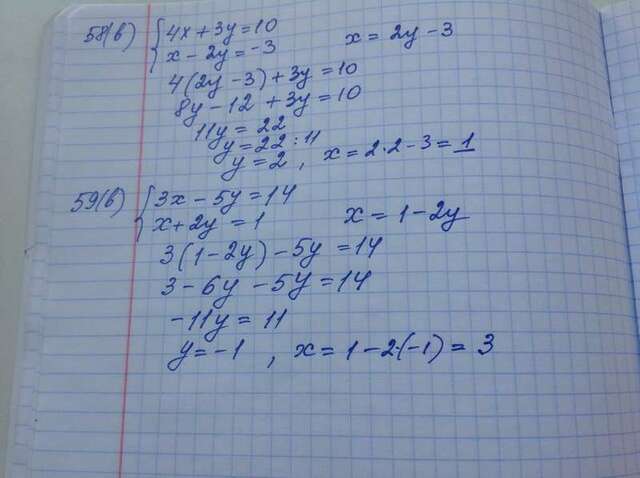 58(в) { 4x + 3y = 10
x - 2y = -3 x = 2y - 3
4(2y - 3) + 3y = 10
8y - 12 + 3y = 10
11y = 22
y = 22 : 11
y = 2 , x = 2·2 - 3 = 1
59(в) { 3x - 5y = 14
x + 2y = 1 x = 1 - 2y
3(1 - 2y) - 5y = 14
3 - 6y - 5y = 14
-11y = 11
y = -1 , x = 1 - 2·(-1) = 3